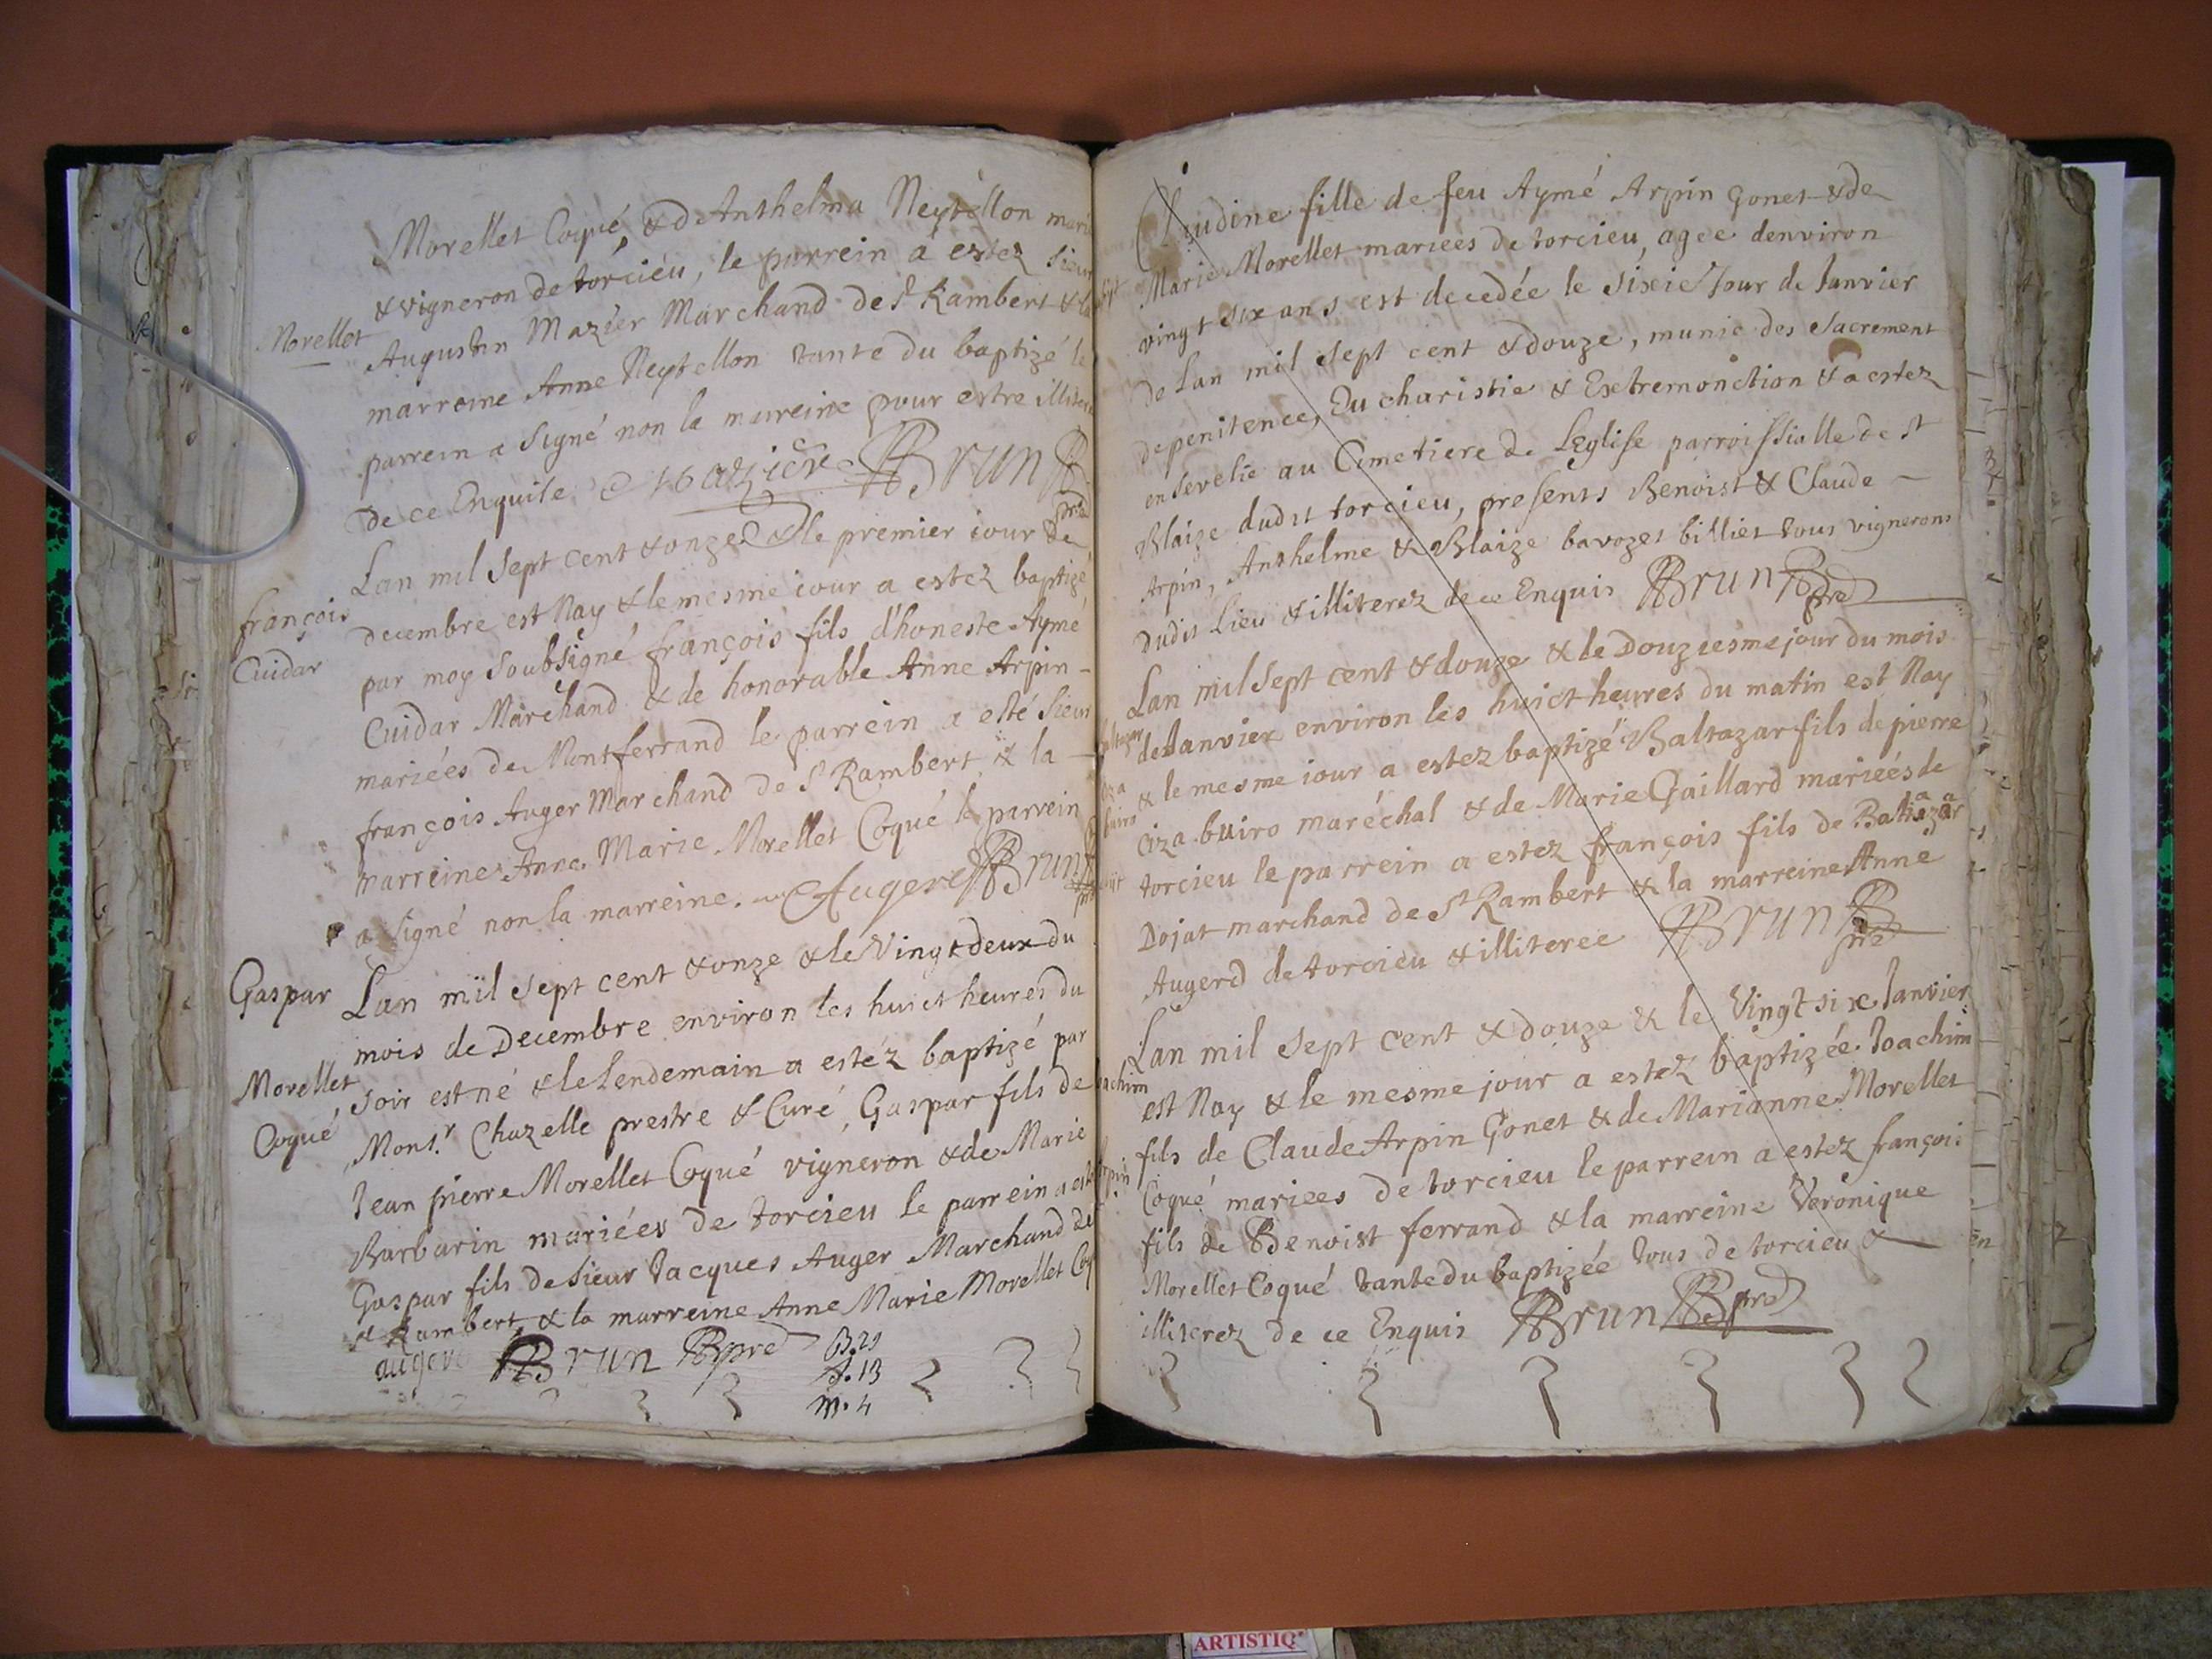 Morellet Coqué & de Anthelma Neytellon mari
& vigneron de torcieu, le parrein a estez Sieur
Morellet
Augustin Mazier Marchand de St Rambert & la
marreine Anne Neytellon tante du baptizé le
parrein a Signé non la marreine pour estre illitere
de ce Enquise Maziere BRUN
pre
Lan mil Sept cent & onze & le premier iour de
françois
Cuidar
decembre est Nay & le mesme iour a estez baptizé
par moy Soubsigné françois fils d'honeste Aymé
Cuidar Marchand & de honorable Anne Arpin -
mariées de Montferrand le parrein a esté Sieur
françois Auger Marchand de St Rambert & la -
marreine Anne Marie Morellet Coqué le parrein
a Signé non la marreine. Augerd BRUN
Gaspar
Morellet
Coqué
Lan mil Sept cent & onze & le Vingt deux du
mois de Decembre environ les huict heures du
soir est né & le Lendemain a estéz baptizé par
Monsr. Chazelle prestre & Curé, Gaspar fils de
Jean pierre Morellet Coqué vigneron & de Marie
Barbarin mariées de torcieu le parrein a
Gaspar fils de Sieur Jacques Auger Marchand de
st Rambert & la marreine Anne Marie Morellet Coq
augerd BRUN pre
B. 29
S. 13
m. 4
Claudine fille de feu Aymé Arpin Gonet & de
Marie Morellet mariées de torcieu, agée denviron
vingt six ans est decedée le Sixie Jour de Janvier
de Lan mil Sept cent & douze, munie des Sacrement
de penitence, Eucharistie & Extremonction & a estez
ensevelie au Cimetiere de LEglise parroissialle de St
Blaize dudit torcieu, presents Benoist & Claude -
Arpin, Anthelme & Blaize bavozet billiet tous vignerons
dudit Lieu & illiterez de ce Enquis BRUN pre
Lan mil Sept cent & douze & le Douziesme jour du mois
de Janvier environ les huict heures du matin est Nay
& le mesme iour a estez baptizé Baltazar fils de pierre
Ciza buiro maréchal & de Marie Gaillard mariées de
torcieu le parrein a estez françois fils de Baltazar
Dojat marchand de St Rambert & la marreine Anne
Augerd de torcieu & illiteree BRUN pre
Lan mil Sept cent & douze & le Vingt six Janvier
achim
est Nay & le mesme jour a estez baptizée Joachim
fils de Claude Arpin Gonet & de Marianne Morellet
Coqué mariees de torcieu le parrein a estez françois
fils de Benoist ferrand & la marreine Veronique
Morellet Coqué tante du baptizée tous de torcieu &
illiterez de ce Enquis BRUN pre
ARTISTIQ